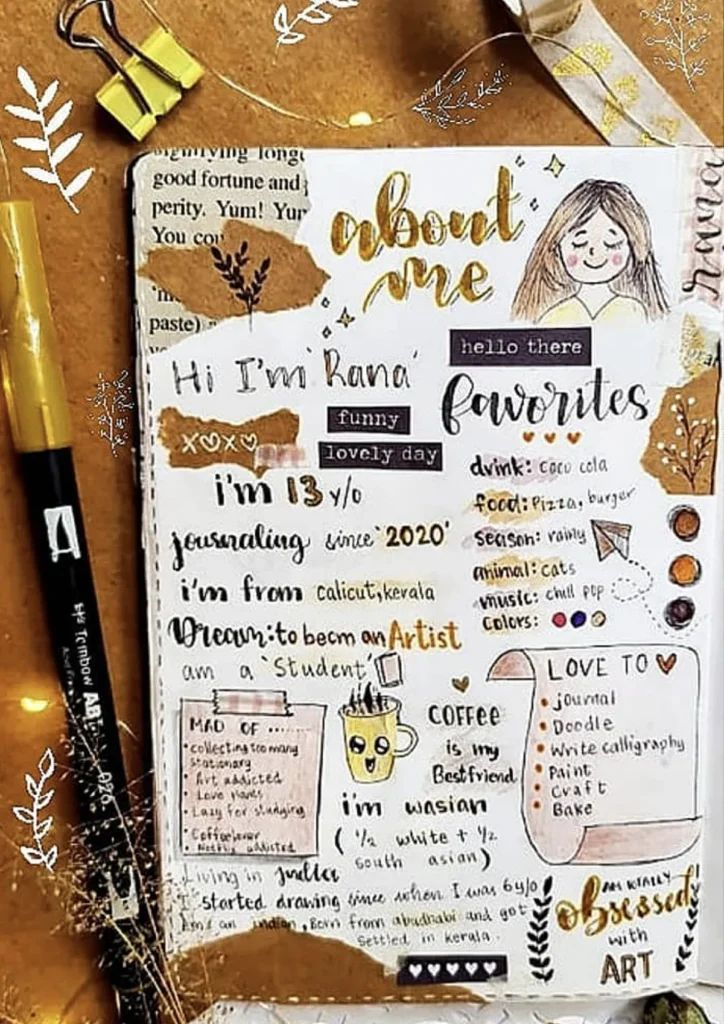 good fortune and
perity. Yum!
paste)
about
me
Hi I'm 'Rana'
hello there
funny
lovely day
XOXO
i'm 13 y/o
journaling since '2020'
i'm from calicut, kerala
Dream: to becm an Artist
am a 'Student'
favorites
drink: coco cola
food: Pizza, burger
season: rainy
animal: cats
music: chill pop
colors:
MAD OF .......
• collecting too many
stationary
• Art addicted
• Lazy for studying
• Coffeelover
• Netflix addicted
COFFEE
is my
Bestfriend
i'm wasian
( 1/2 white + 1/2
south asian)
LOVE TO
• journal
• Doodle
• Write calligraphy
• Paint
• Craft
• Bake
Living in
I started drawing since when I was 6y/o
And an indian, Born from abudhabi and got
settled in kerala.
AM TOTALLY
obsessed
with
ART
Tombow AB